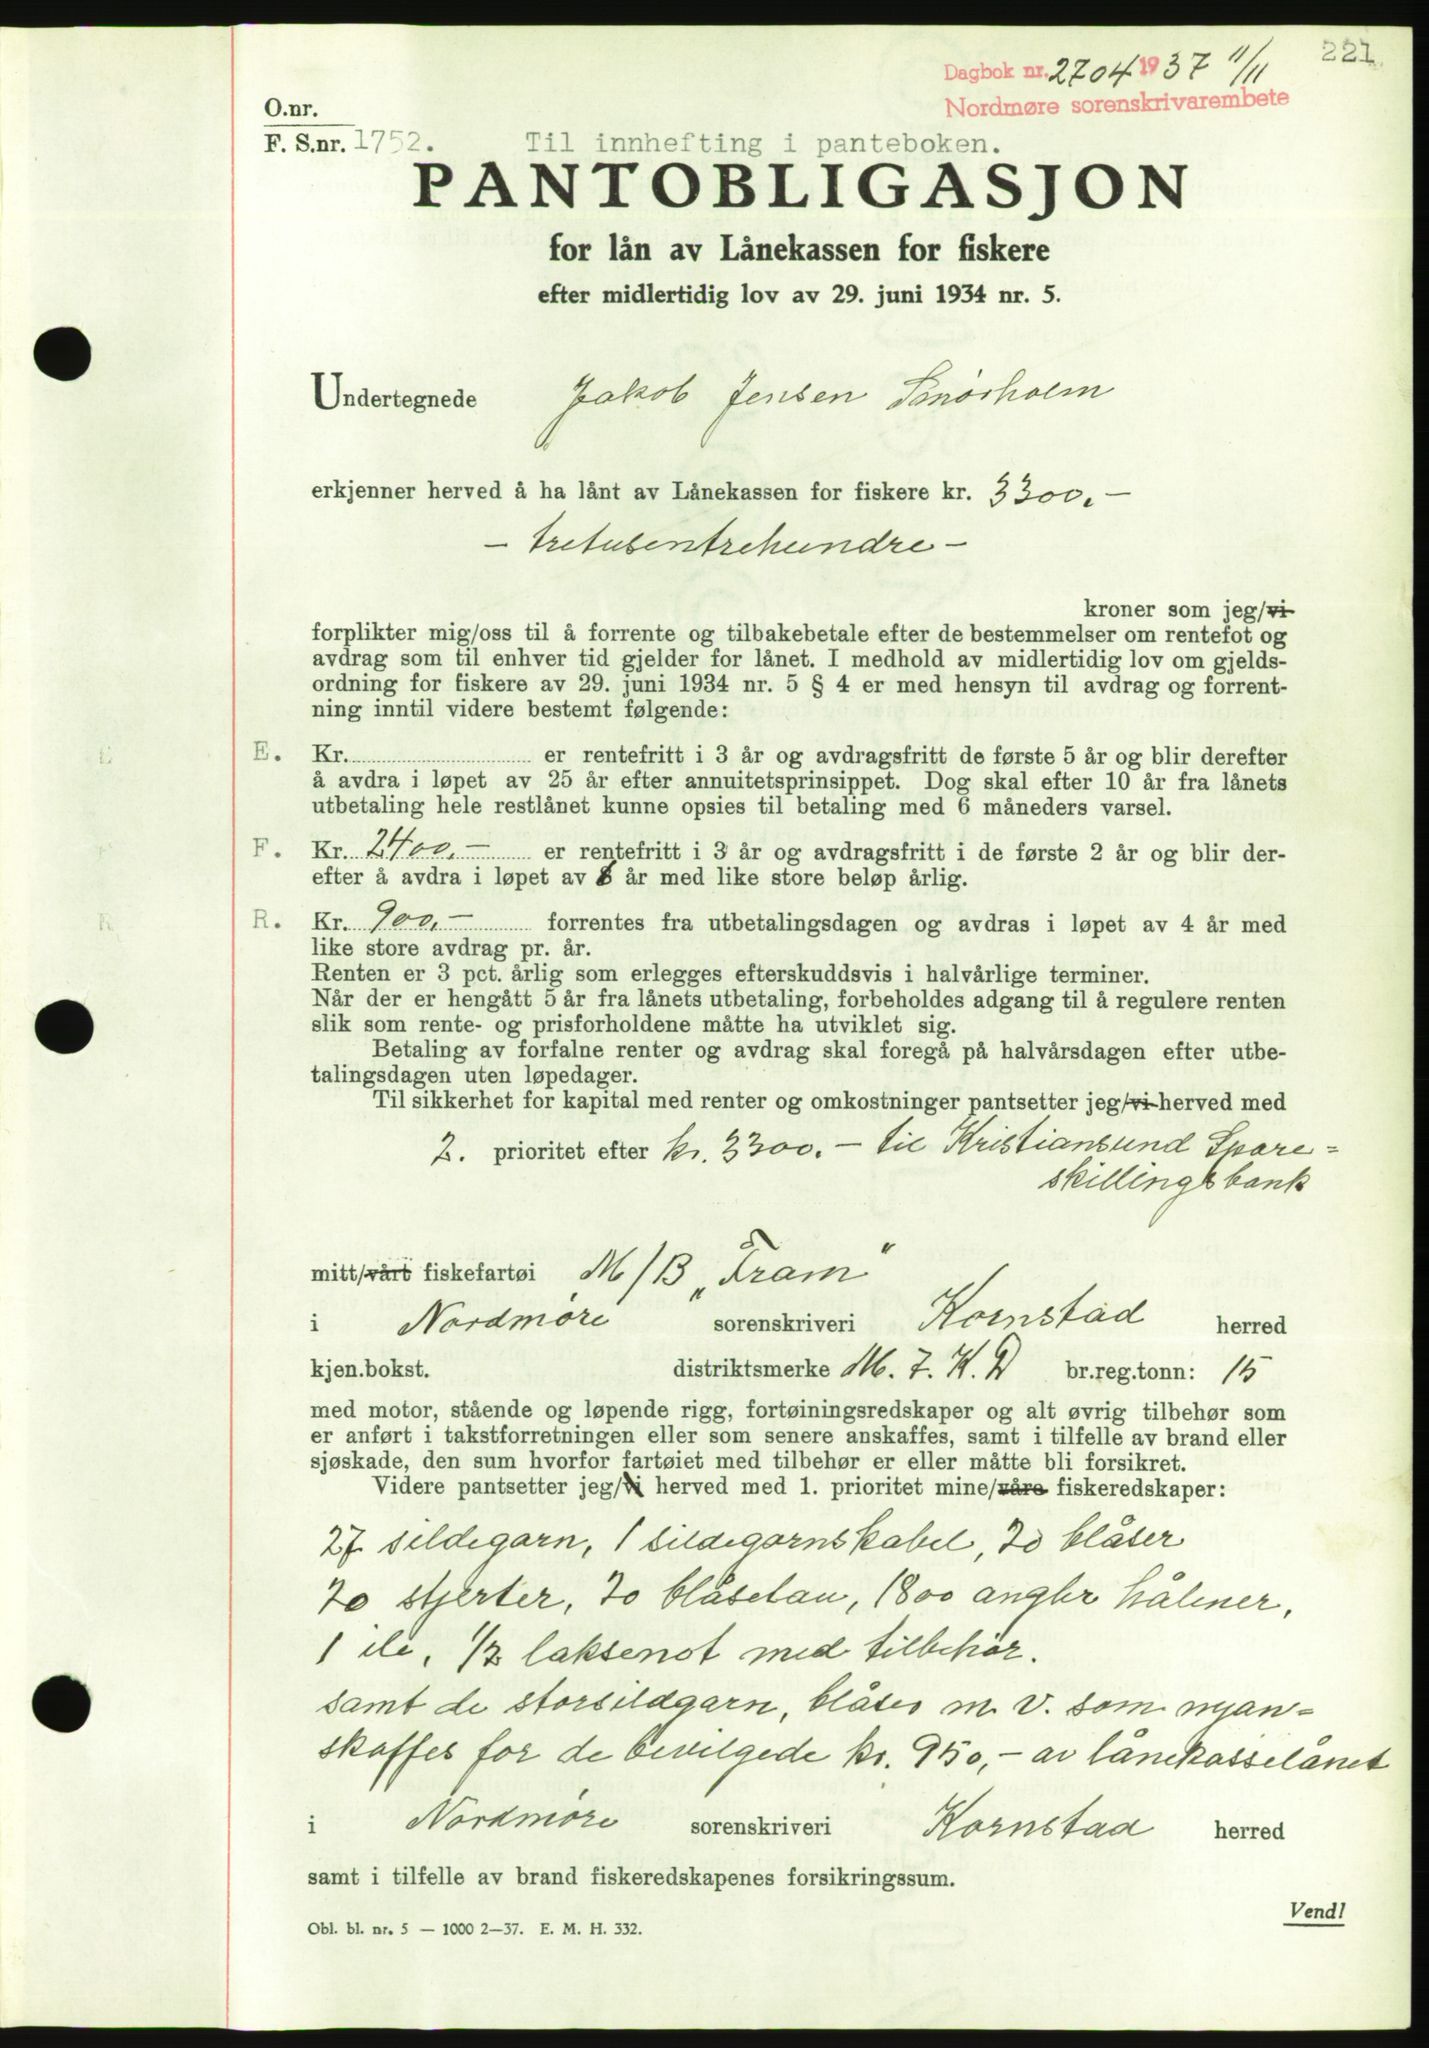 221
Dagbok nr. 2704 1937 11/11
Nordmøre sorenskrivarembete
O.nr.
F. S.nr. 1752. Til innhefting i panteboken.
PANTOBLIGASJON
for lån av Lånekassen for fiskere
efter midlertidig lov av 29. juni 1934 nr. 5.
Undertegnede Jakob Jensen Smørholm
erkjenner herved å ha lånt av Lånekassen for fiskere kr. 3300.-
- tretusentrehundre -
kroner som jeg/vi
forplikter mig/oss til å forrente og tilbakebetale efter de bestemmelser om rentefot og
avdrag som til enhver tid gjelder for lånet. I medhold av midlertidig lov om gjelds-
ordning for fiskere av 29. juni 1934 nr. 5 § 4 er med hensyn til avdrag og forrent-
ning inntil videre bestemt følgende:
E. Kr. er rentefritt i 3 år og avdragsfritt de første 5 år og blir derefter
å avdra i løpet av 25 år efter annuitetsprinsippet. Dog skal efter 10 år fra lånets
utbetaling hele restlånet kunne opsies til betaling med 6 måneders varsel.
F. Kr. 2400.- er rentefritt i 3 år og avdragsfritt i de første 2 år og blir der-
efter å avdra i løpet av år med like store beløp årlig.
R. Kr. 900.- forrentes fra utbetalingsdagen og avdras i løpet av 4 år med
like store avdrag pr. år.
Renten er 3 pct. årlig som erlegges efterskuddsvis i halvårlige terminer.
Når der er hengått 5 år fra lånets utbetaling, forbeholdes adgang til å regulere renten
slik som rente- og prisforholdene måtte ha utviklet sig.
Betaling av forfalne renter og avdrag skal foregå på halvårsdagen efter utbe-
talingsdagen uten løpedager.
Til sikkerhet for kapital med renter og omkostninger pantsetter jeg/vi herved med
2. prioritet efter kr. 3300.- til Kristiansund Spare=
skillingsbank
mitt/vårt fiskefartøi M/B "Fram"
i Nordmøre sorenskriveri Kornstad herred
kjen.bokst. distriktsmerke M. 7. K. D br.reg.tonn: 15
med motor, stående og løpende rigg, fortøiningsredskaper og alt øvrig tilbehør som
er anført i takstforretningen eller som senere anskaffes, samt i tilfelle av brand eller
sjøskade, den sum hvorfor fartøiet med tilbehør er eller måtte bli forsikret.
Videre pantsetter jeg/vi herved med 1. prioritet mine/våre fiskeredskaper:
27 sildegarn, 1 sildegarnskabel, 20 blåser
20 stjerter, 20 blåsetau, 1800 angler håliner,
1 ile, 1/2 laksenot med tilbehør.
samt de storsildgarn, blåser m. v. som nyan=
skaffes for de bevilgede kr. 950,- av lånekasselånet
i Nordmøre sorenskriveri Kornstad herred
samt i tilfelle av brand fiskeredskapenes forsikringssum.
Vend!
Obl. bl. nr. 5 — 1000 2—37. E. M. H. 332.